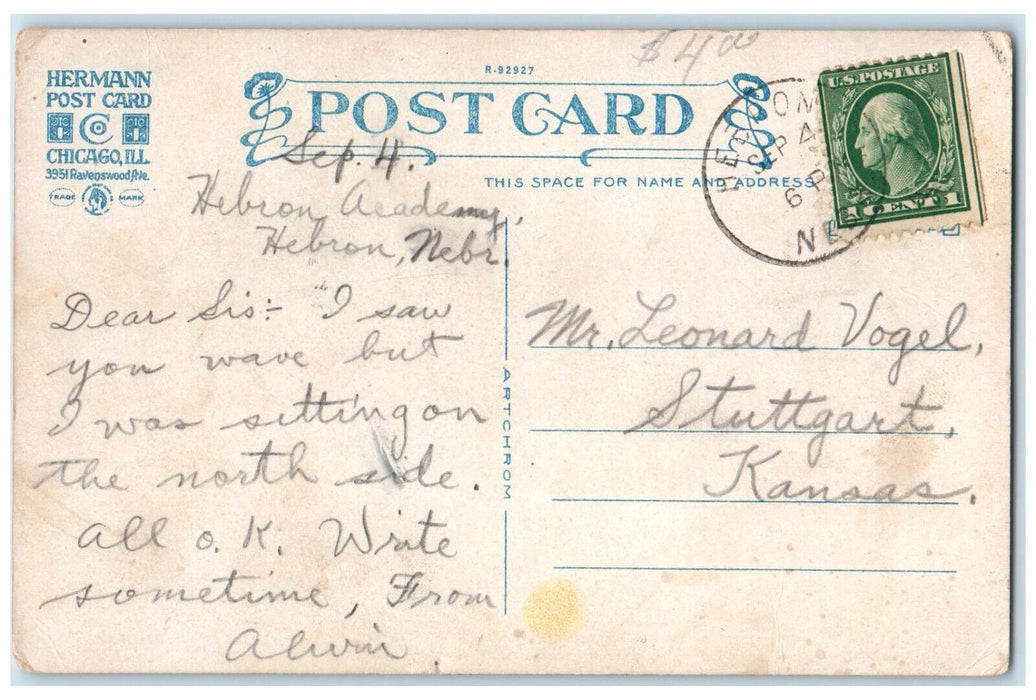 $4.00
HERMANN
POST CARD
CO
CHICAGO, ILL.
3951 Ravenswood Ave.
TRADE MARK
R-92927
POST CARD
THIS SPACE FOR NAME AND ADDRESS
U.S. POSTAGE
1 CENT 1
SEP 4
6 P
NEBR
Sep. 4.
Hebron Academy,
Hebron, Nebr.
Dear Sis:- I saw
you wave but
I was sitting on
the north side.
All o. K. Write
sometime, From
Alwin.
ARTCHROM
Mr. Leonard Vogel,
Stuttgart,
Kansas.